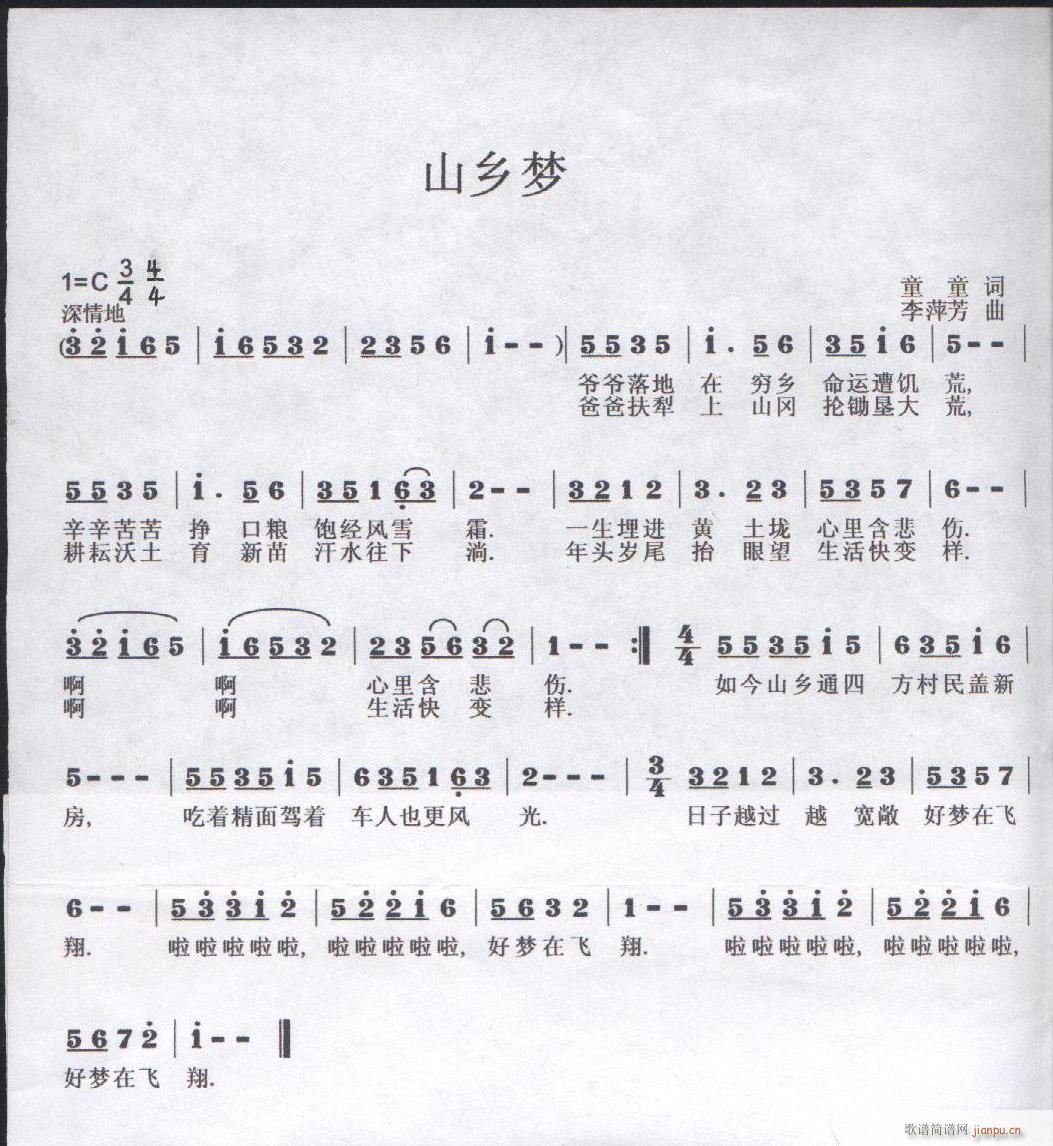 山乡梦
1=C 3/4 4/4
童 童 词
深情地
李萍芳 曲
(3 2 1 6 5 | 1 6 5 3 2 | 2 3 5 6 | 1 - - )| 5 5 3 5 | 1 . 5 6 | 3 5 1 6 | 5 - - |
爷爷落地 在 穷乡 命运遭饥 荒,
爸爸扶犁 上 山冈 抡锄垦大 荒,
5 5 3 5 | 1 . 5 6 | 3 5 1 6 3 | 2 - - | 3 2 1 2 | 3 . 2 3 | 5 3 5 7 | 6 - - |
辛辛苦苦 挣 口粮 饱经风雪 霜. 一生埋进 黄 土垅 心里含悲 伤.
耕耘沃土 育 新苗 汗水往下 淌. 年头岁尾 抬 眼望 生活快变 样.
3 2 1 6 5 | 1 6 5 3 2 | 2 3 5 6 3 2 | 1 - - :| 4/4 5 5 3 5 1 5 | 6 3 5 1 6 |
啊 啊 心里含 悲 伤. 如今山乡通四 方村民盖新
啊 啊 生活快 变 样.
5 - - - | 5 5 3 5 1 5 | 6 3 5 1 6 3 | 2 - - - | 3/4 3 2 1 2 | 3 . 2 3 | 5 3 5 7 |
房, 吃着精面驾着 车人也更风 光. 日子越过 越 宽敞 好梦在飞
6 - - | 5 3 3 1 2 | 5 2 2 1 6 | 5 6 3 2 | 1 - - | 5 3 3 1 2 | 5 2 2 1 6 |
翔. 啦啦啦啦啦, 啦啦啦啦啦, 好梦在飞 翔. 啦啦啦啦啦, 啦啦啦啦啦,
5 6 7 2 | 1 - - ||
好梦在飞 翔.
歌谱简谱网 jianpu.cn